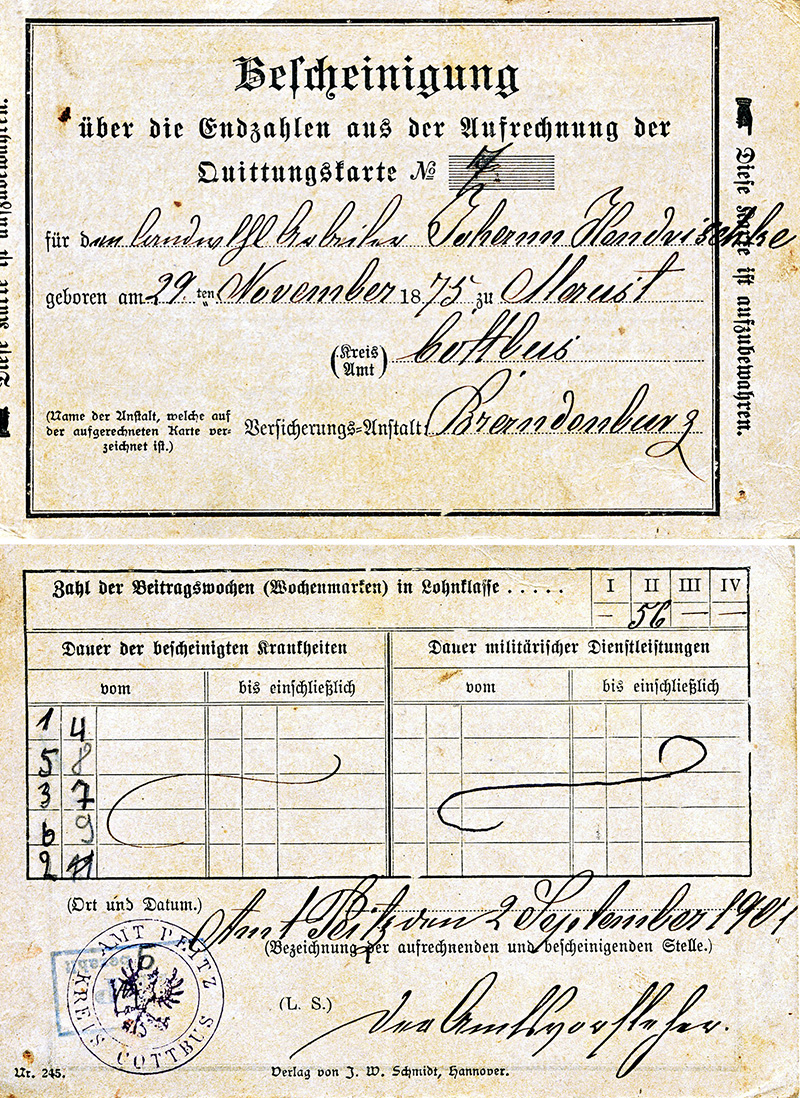 Bescheinigung
über die Endzahlen aus der Aufrechnung der
Quittungskarte № 7
für den landw Arbeiter Johann Handrischke
geboren am 29 ten November 1875 zu Maust
(Kreis Amt) Cottbus
(Name der Anstalt, welche auf
der aufgerechneten Karte ver-
zeichnet ist.)
Versicherungs-Anstalt: Brandenburg
Diese Karte ist aufzubewahren.
Diese Karte ist aufzubewahren.
Zahl der Beitragswochen (Wochenmarken) in Lohnklasse . . . . . I II III IV
– 56 — —
Dauer der bescheinigten Krankheiten Dauer militärischer Dienstleistungen
vom bis einschließlich vom bis einschließlich
1 4
5 8
3 7
6 9
2 11
(Ort und Datum.) Amt Peitz den 2 September 1901
(Bezeichnung der aufrechnenden und bescheinigenden Stelle.)
AMT PEITZ
KREIS COTTBUS
6
(L. S.) Der Amtsvorsteher.
Nr. 245. Verlag von J. W. Schmidt, Hannover.